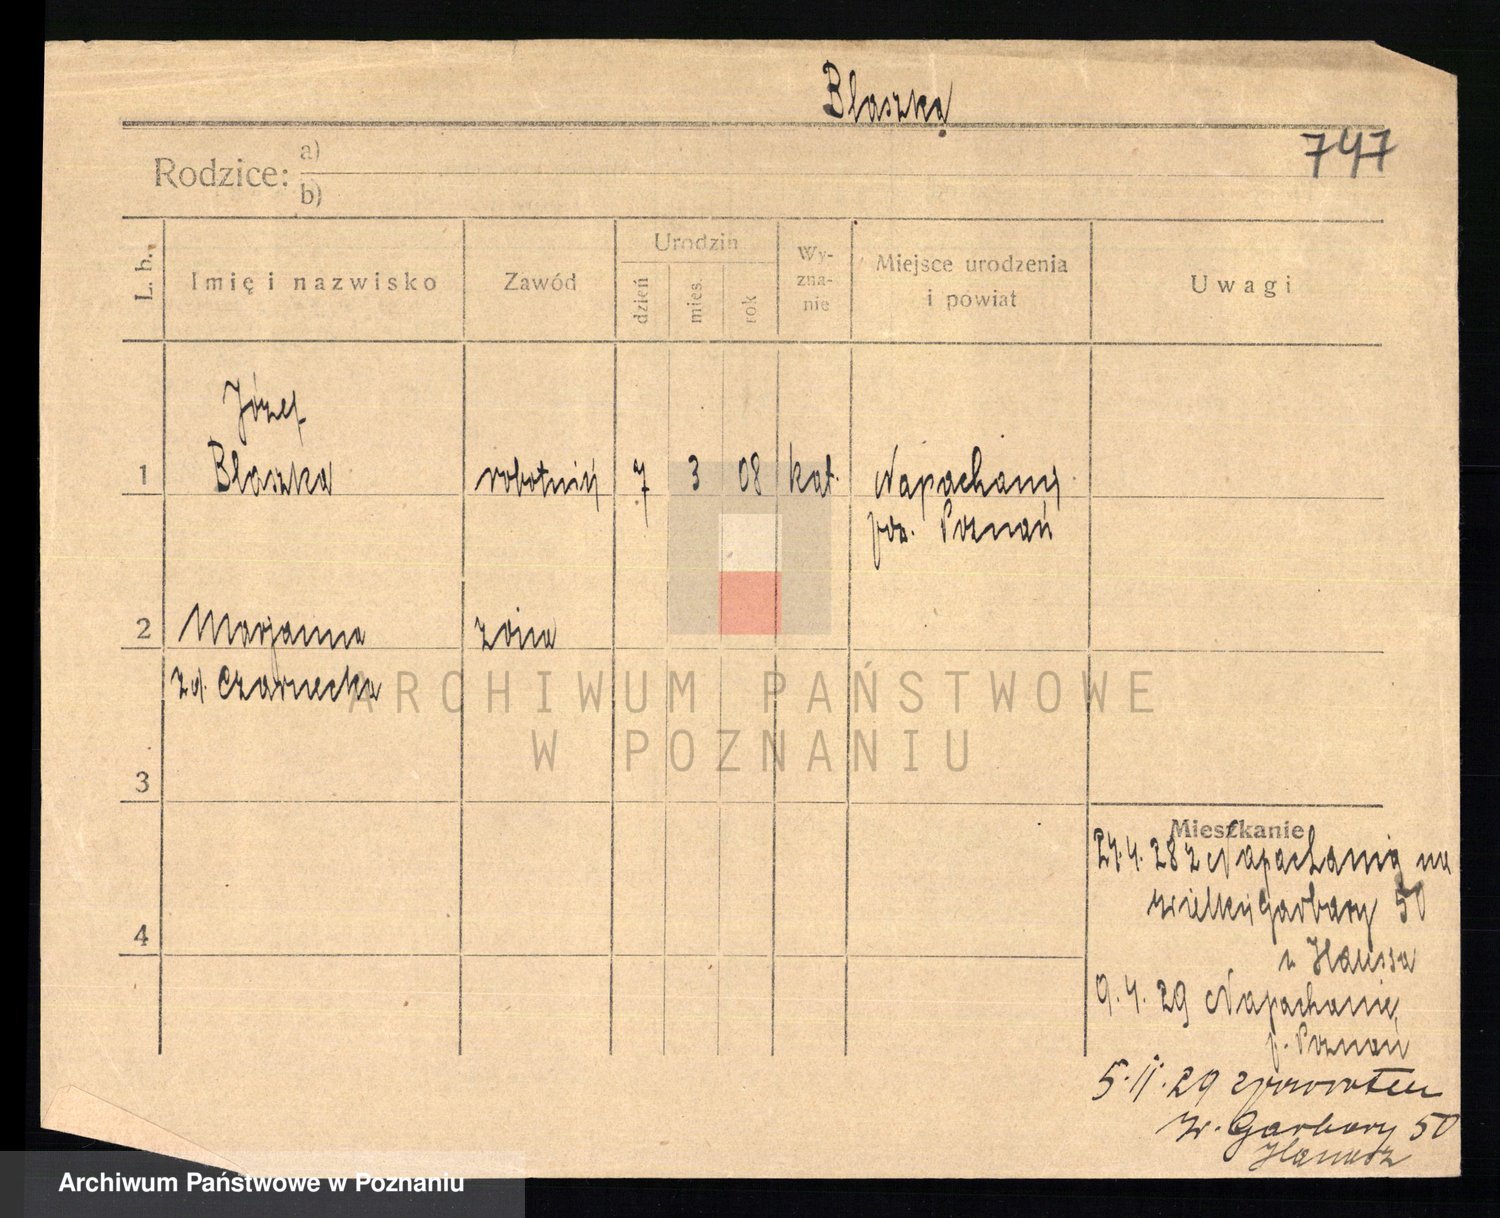 Błaszka
747
Rodzice: a)
b)
L. b. Imię i nazwisko Zawód Urodzin dzień mies. rok Wy-zna-nie Miejsce urodzenia i powiat Uwagi
Józef
1 Błaszka robotnik 7 3 08 kat. Napachanie
pow. Poznań
2 Marjanna żona
zd. Czarnecka
3
4
Mieszkanie
27.4.28 z Napachania na
Wielkie Garbary 50
u
9.4.29 Napachanie,
p. Poznań
5.11.29 z powrotem
W. Garbary 50
ARCHIWUM PAŃSTWOWE
W POZNANIU
Archiwum Państwowe w Poznaniu